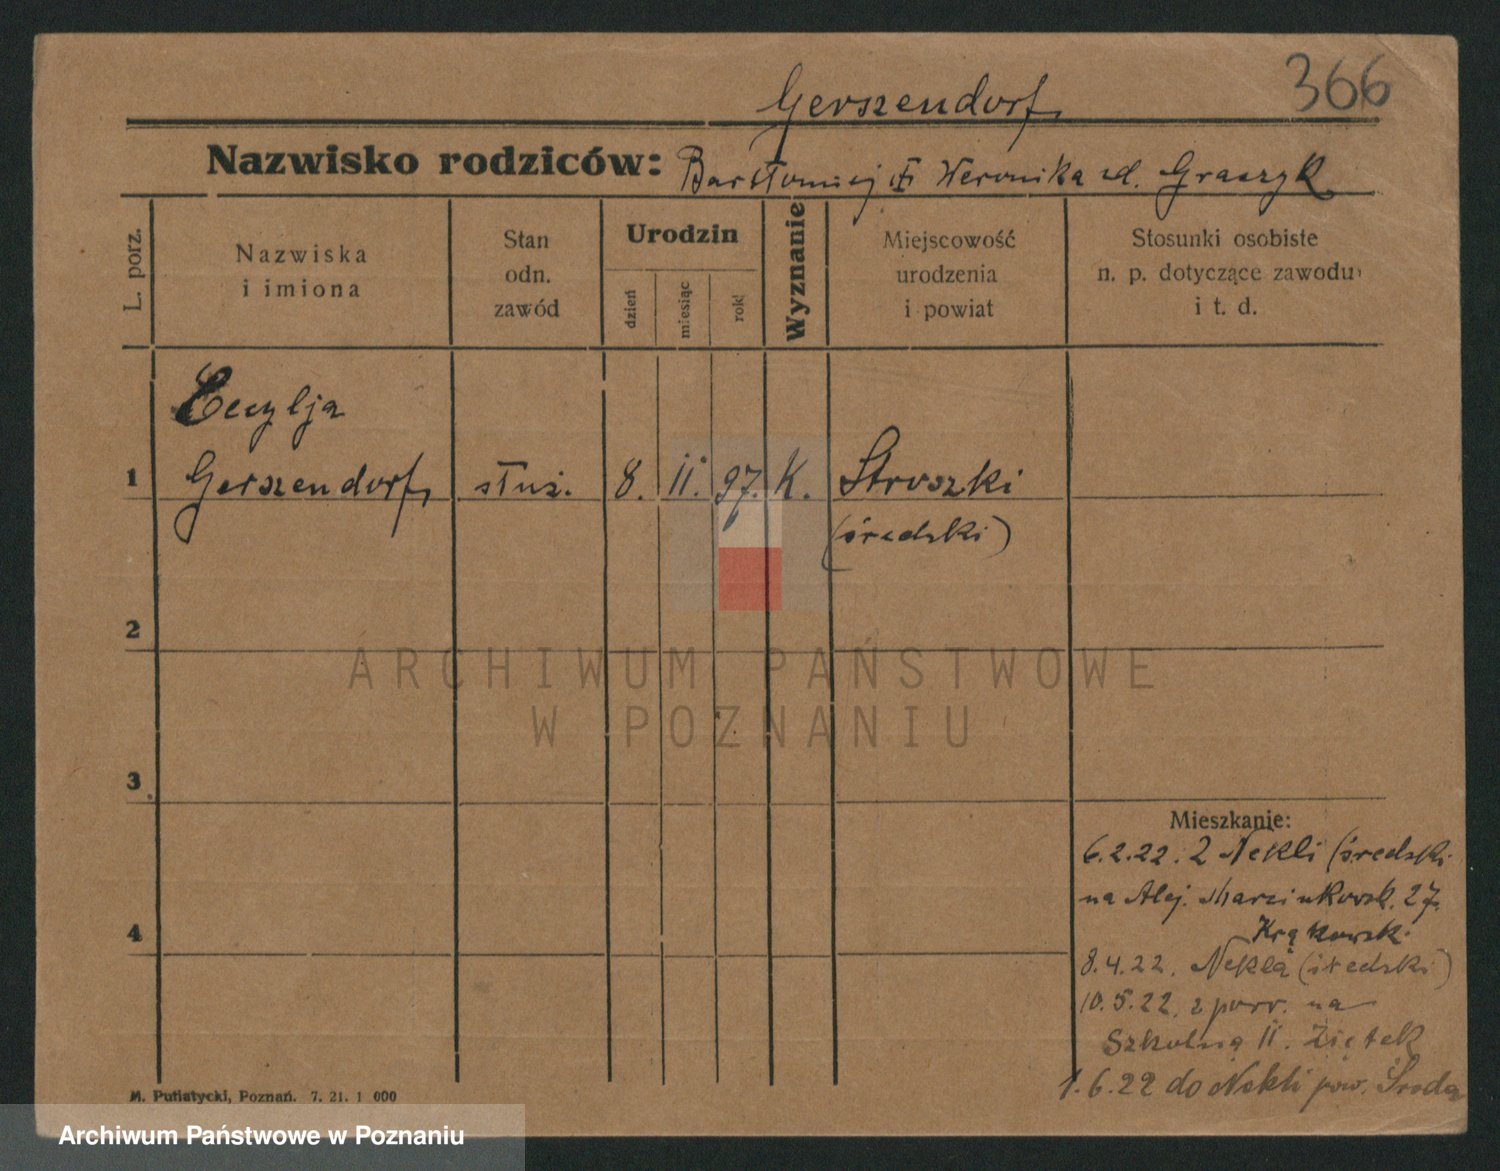 366
Gerszendorf
Nazwisko rodziców: Bartłomiej i Weronika zd. Graczyk
L. porz.
Nazwiska
i imiona
Stan
odn.
zawód
Urodzin
dzień
miesiąc
rok
Wyznanie
Miejscowość
urodzenia
i powiat
Stosunki osobiste
n. p. dotyczące zawodu
i t. d.
Cecylja
1 Gerszendorf służ. 8. II. 97. K. Stroszki
(średzki)
2
3
4
Mieszkanie:
6.2.22. Z Nekli (średzki
na Alej. Marcinkowsk. 27.
Krąkowski
8.4.22. Nekla (średzki)
10.5.22. z powr. na
Szkolną 11. Ziętek
1.6.22 do Nekli pow. Środa
M. Putiatycki, Poznań. 7. 21. 1 000
ARCHIWUM PAŃSTWOWE
W POZNANIU
Archiwum Państwowe w Poznaniu